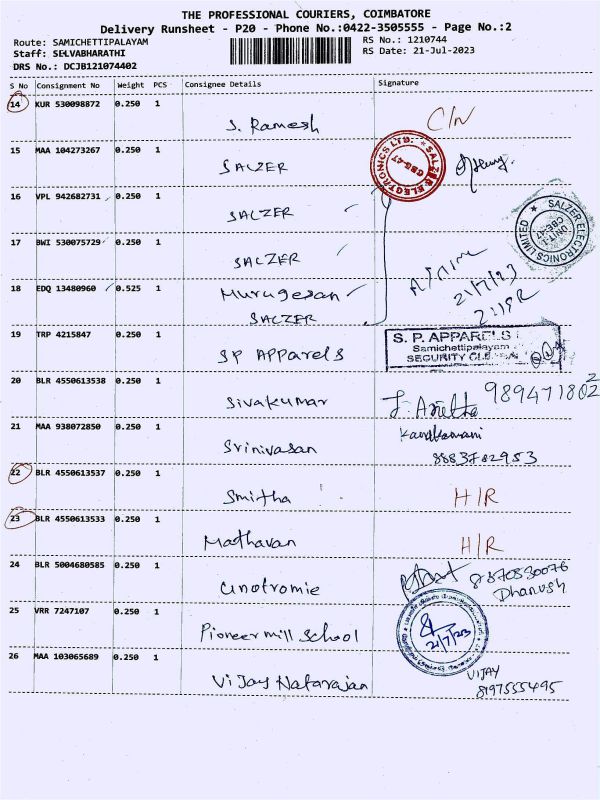 THE PROFESSIONAL COURIERS, COIMBATORE
Delivery Runsheet - P20 - Phone No.:0422-3505555 - Page No.:2
Route: SAMICHETTIPALAYAM
RS No.: 1210744
Staff: SELVABHARATHI
RS Date: 21-Jul-2023
DRS No.: DCJB121074402
S No Consignment No Weight PCS Consignee Details Signature
14 KUR 530098872 0.250 1
S. Ramesh
15 MAA 104273267 0.250 1
SALZER
SALZER ELECTRONICS LTD. CBE-47
16 VPL 942682731 0.250 1
SALZER
SALZER ELECTRONICS LIMITED UNIT-1 CBE-47
17 BWI 530075729 0.250 1
SALZER
18 EDQ 13480960 0.525 1
Murugesan
SALZER
21/7/23
19 TRP 4215847 0.250 1
SP APParels
S. P. APPARELS
Samichettipalayam
SECURITY
20 BLR 4550613538 0.250 1
Sivakumar
21 MAA 938072850 0.250 1
Srinivasan
8883782953
22 BLR 4550613537 0.250 1
Smitha H/R
23 BLR 4550613533 0.250 1
Mathavan H/R
24 BLR 5004680585 0.250 1
Dhanush
25 VRR 7247107 0.250 1
Pioneer mill School
21/7/23
26 MAA 103065689 0.250 1
Vijay Natarajan
VIJAY
8197555495